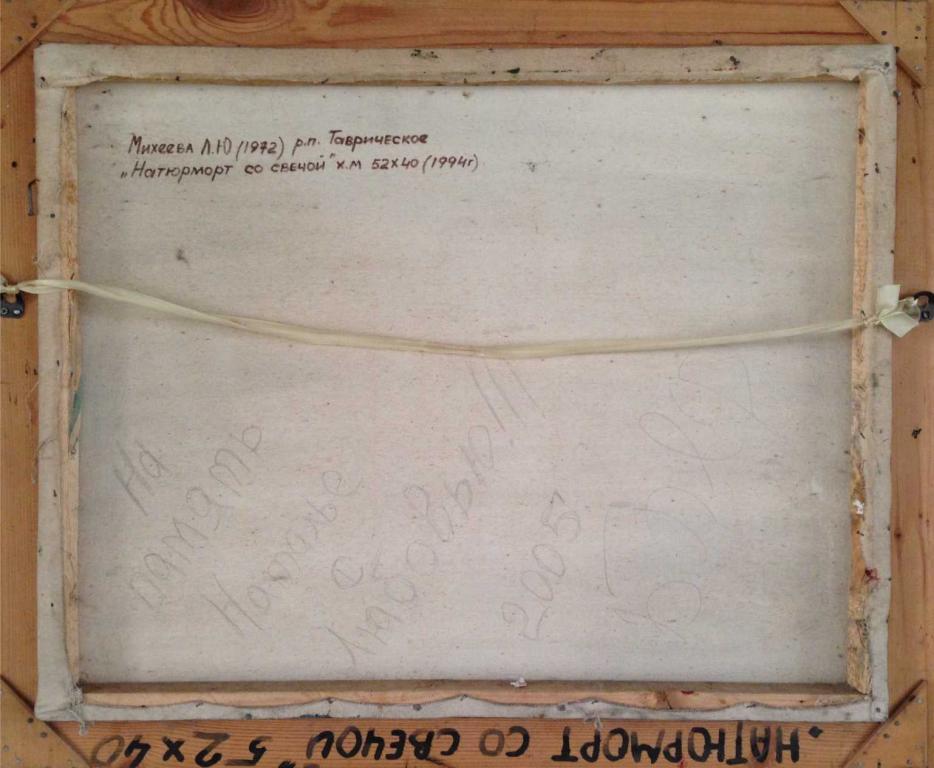 Михеева Л.Ю (1972) р.п. Таврическое
„Натюрморт со свечой" х.м 52х40 (1994г)
На
память
Наташе
с
любовью!!!
2005
„НАТЮРМОРТ СО СВЕЧОЙ" 52х40